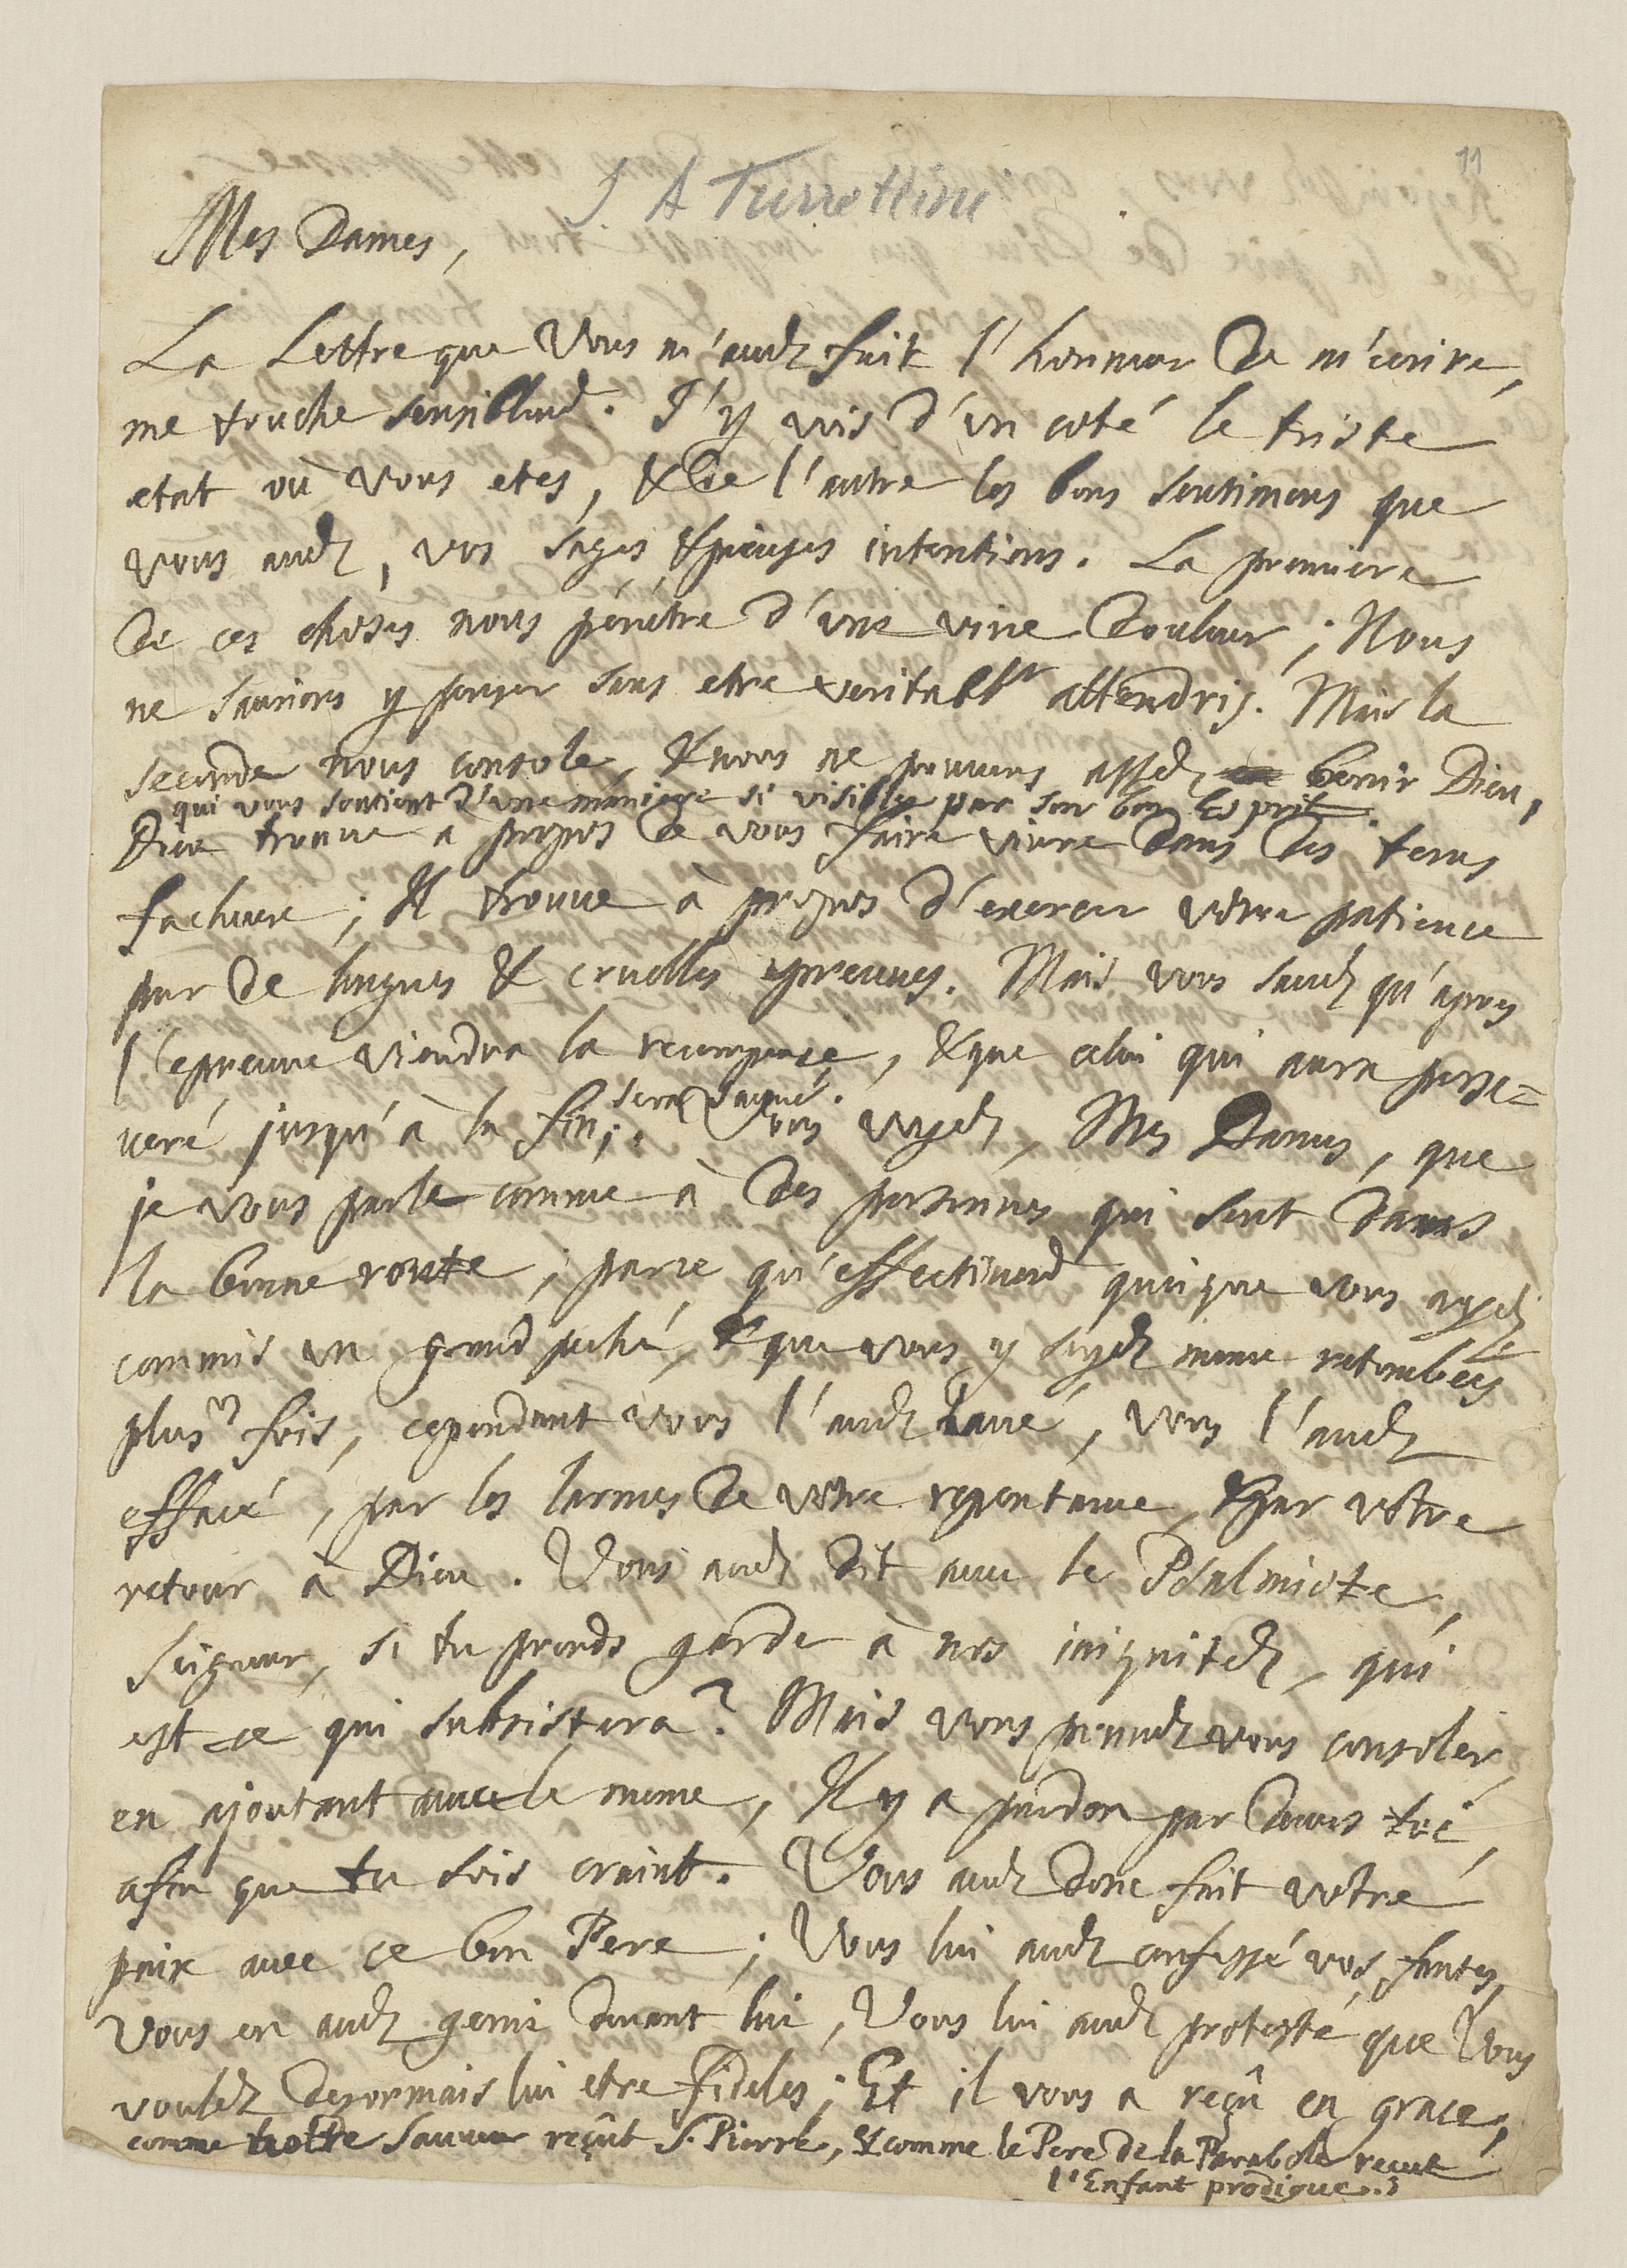 11
J. A Turrettini
Mes Dames,
La Lettre que Vous m'avez fait l'honneur de m'ecrire,
me touche sensiblemt. J'y vois d'un coté le triste
etat où vous etes, & de l'autre les bons sentimens que
vous avez, vos sages & pieuses intentions. La premiere
de ces choses nous pénétre d'une vive douleur; Nous
ne saurions y penser sans etre veritablt attendris. Mais la
seconde nous console, & nous ne pouvons assez benir Dieu,
qui vous soutient d'une maniere si visible par son bon Esprit.
Dieu trouve à propos de vous faire vivre dans des tems
facheux; Il trouve à propos d'exercer votre patience
par de longues & cruelles epreuves. Mais vous savez qu'apres
l'epreuve viendra la recompense, & que celui qui aura perse=
veré jusqu'à la fin, sera sauvé. Vous voyez, Mes Dames, que
je vous parle comme à des personnes qui sont dans
la bonne route; parce qu'effectivemt quoique vous ayez
commis un grand peché, & que vous y soyez meme retombées
plusrs fois, cependant vous l'avez lavé, vous l'avez
effacé, par les larmes de votre repentance, & par votre
retour à Dieu. Vous avez dit avec le Psalmiste,
Seigneur, si tu prends garde à nos iniquitez, qui
est ce qui subsistera? Mais vous pouvez vous consoler
en ajoutant avec le meme, Il y a pardon par devers toi,
afin que tu sois craint. Vous avez donc fait votre
paix avec ce bon Pere; Vous lui avez confessé vos fautes,
Vous en avez gemi devant lui, Vous lui avez protesté que Vous
voulez desormais lui etre fideles; Et il vous a reçû en grace,
comme notre Sauveur reçût S. Pierre, & comme le Pere de la Parabole recut
l'Enfant prodigue.